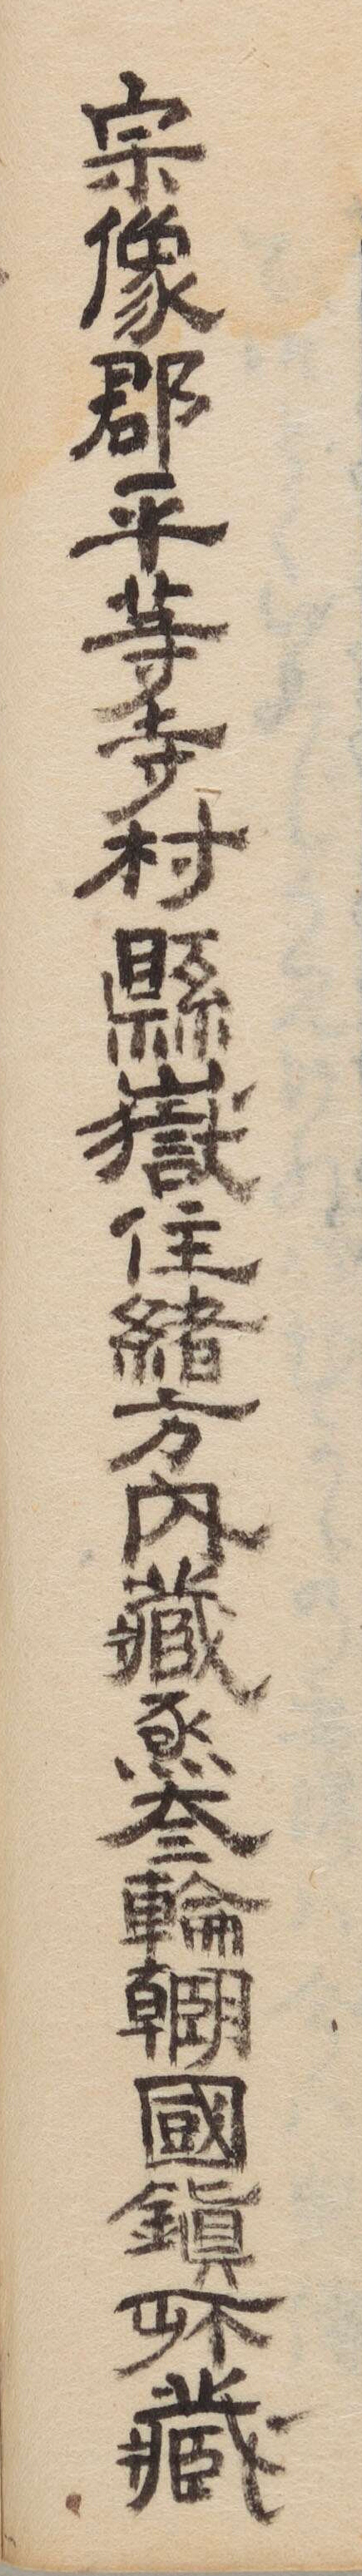 宗像郡平等寺村縣嶽住緒方内藏烝叁輪朝臣國鎮所藏